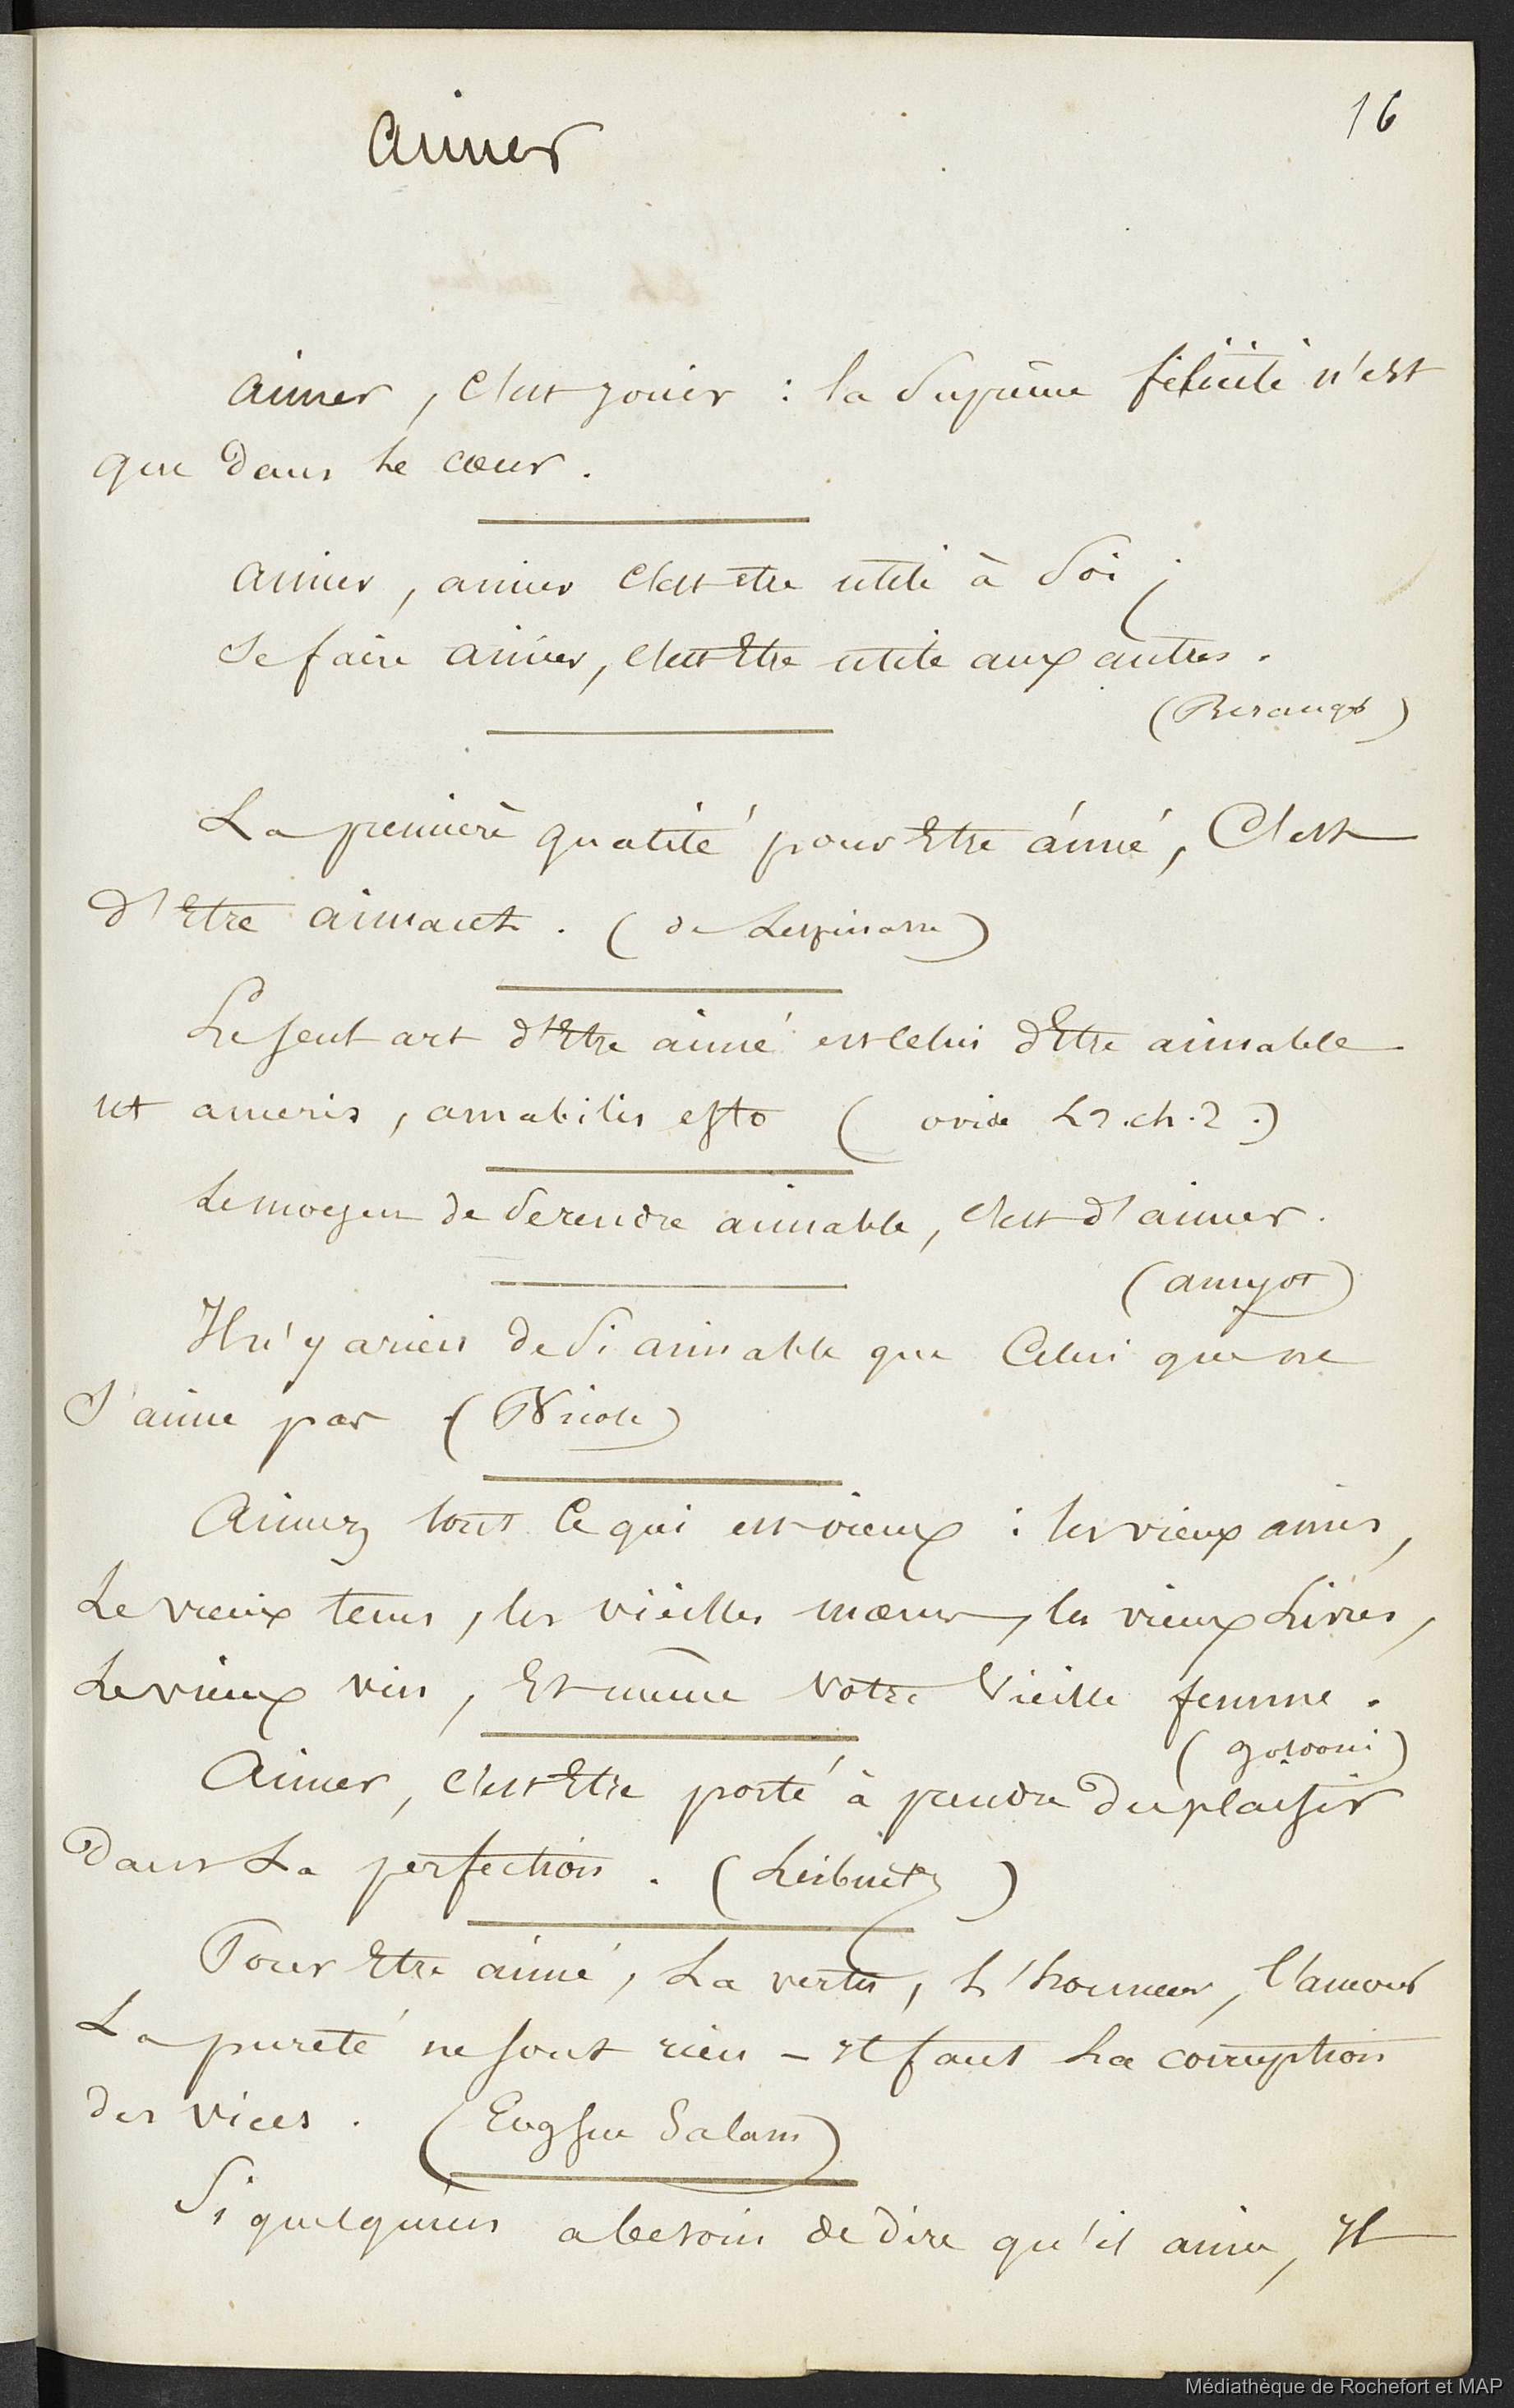 16
Aimer
Aimer, c'est jouir : la suprême félicité n'est
que dans le cœur.
Aimer, aimer c'est etre utile à soi ;
se faire aimer, c'est Etre utile aux autres.
(Beranger)
La première qualité pour Etre aimé, C'est
d'Etre aimant. (de Lespinasse)
Le seul art d'Etre aimé est celui d'Etre aimable
ut ameris, amabilis esto (ovide L2.ch.2.)
Le moyen de se rendre aimable, c'est d'aimer.
(amyot)
Il n'y a rien de si aimable que Celui qui ne
s'aime pas (Nicole)
Aimez tout Ce qui est vieux : les vieux amis,
Le vieux tems, les vieilles mœurs, les vieux Livres,
Le vieux vin, Et même votre Vieille femme.
(goldoni)
Aimer, c'est Etre porté à prendre du plaisir
dans La perfection. (Leibnitz)
Pour Etre aimé, La vertu, L'honneur, l'amour
La pureté ne sont rien - il faut La corruption
des vices. (Eug sue Salam)
Si quelqu'un a besoin de dire qu'il aime, Il
Médiathèque de Rochefort et MAP